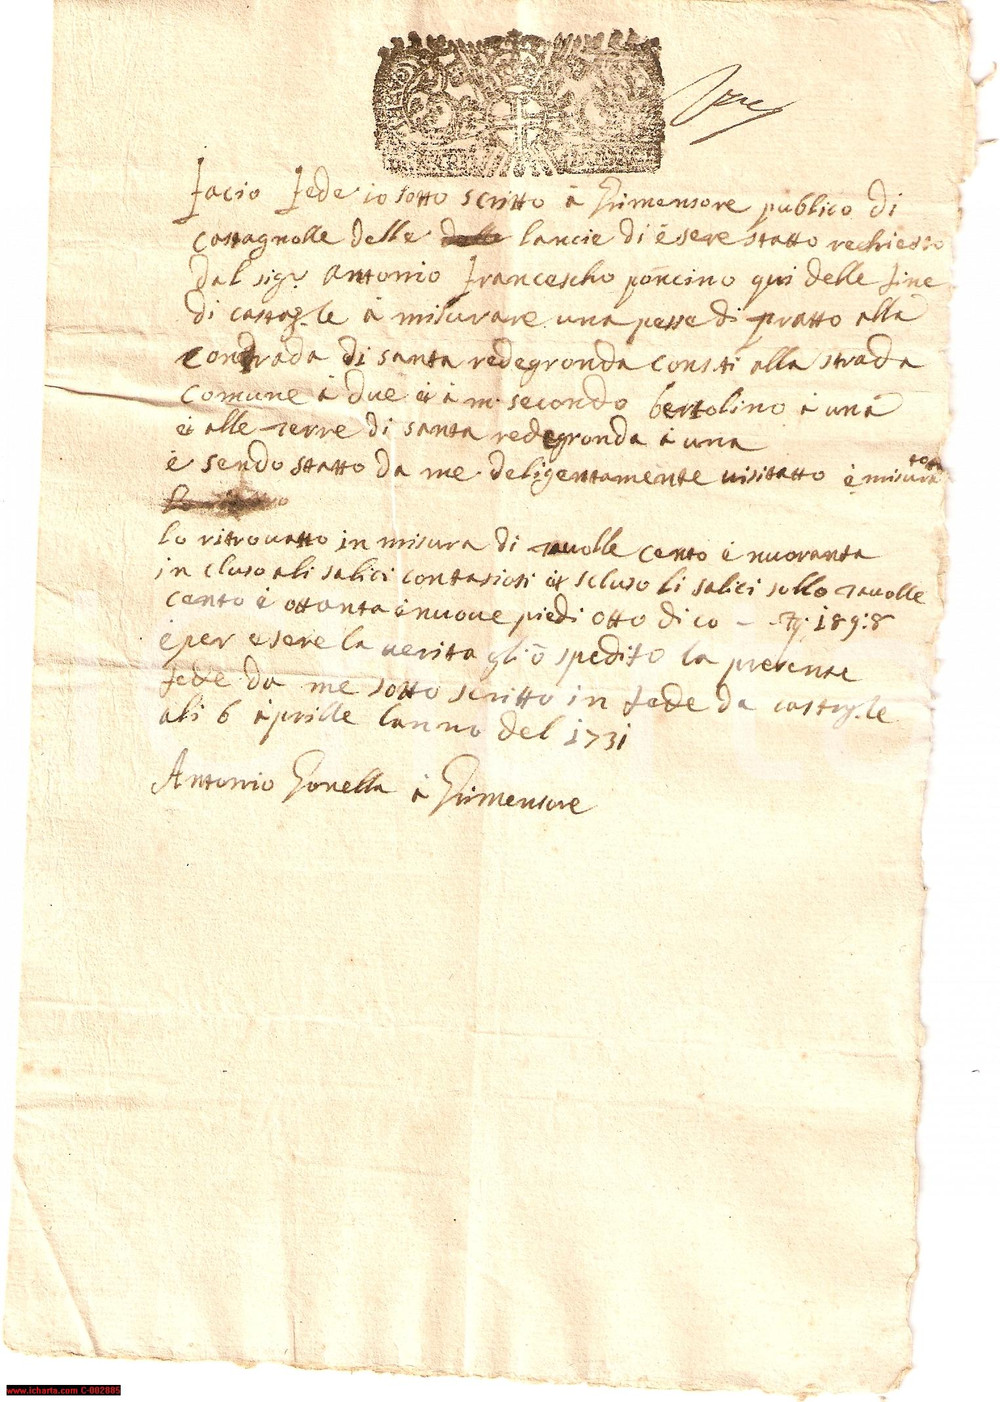 facio fede io sotto scritto à Grimensore publico di
castagnolle delle lancie di èsere statto rechiesto
dal sig.r Antonio francescho poncino qui delle fine
di castag.le à misurare una pesse di pratto alla
contrada di santa redegronda consti alla strada
comune à due et à m. secondo bertolino à una
et alle terre di santa redegronda à una
è sendo statto da me deligentamente visitatto è misura
totto
lo ritrovatto in misura di tavolle cento è nuoranta
in cluso ali salici contasiosi et scluso li salici sollo tavolle
cento è ottanta è nuove piedi otto dico - 189:8
è per esere la verita gli ò spedito la presente
fede da me sotto scritto in fede da castag.le
ali 6 àprille lanno del 1731
Antonio Gonella à Grimensore
www.icharta.com C-002885